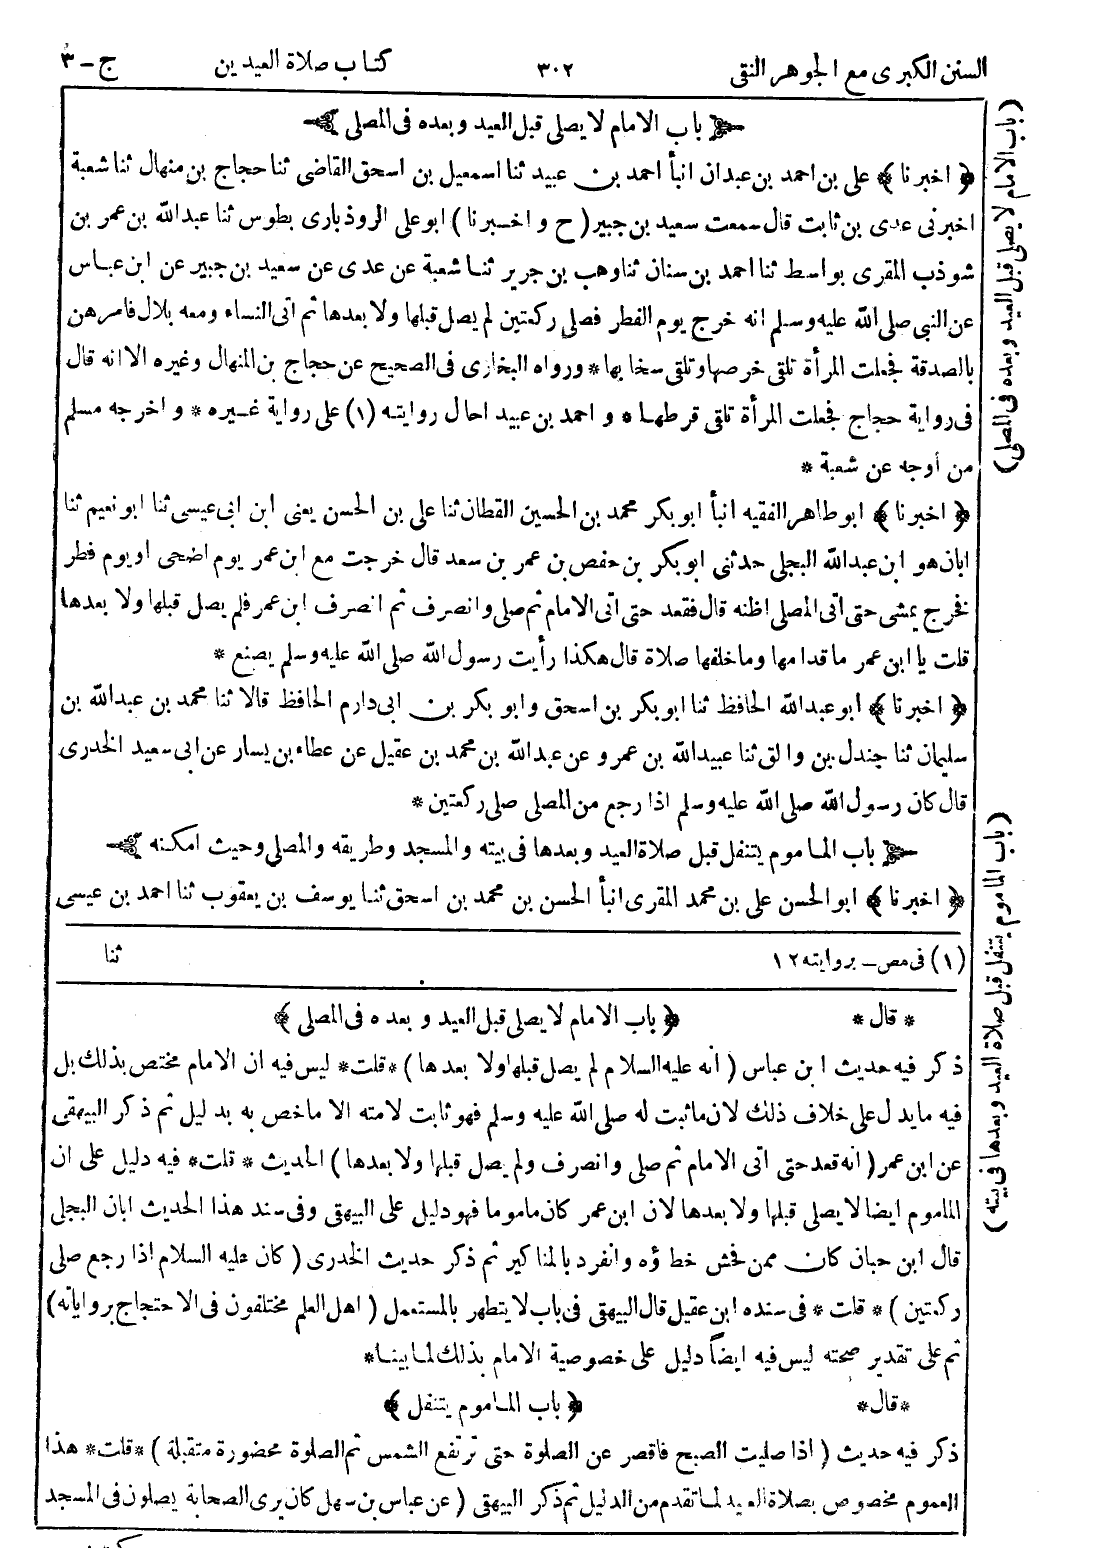 السنن الكبرى مع الجوهر النقى ٣٠٢ كتاب صلاة العيدين ج-٣
باب الامام لا يصلى قبل العيد وبعده فى المصلى
﴿ اخبرنا ﴾ على بن احمد بن عبدان انبأ احمد بن عبيد ثنا اسمعيل بن اسحق القاضى ثنا حجاج بن منهال ثنا شعبة
اخبرنى عدى بن ثابت قال سمعت سعيد بن جبير (ح واخبرنا) ابو على الروذبارى بطوس ثنا عبدالله بن عمر بن
شوذب المقرى بواسط ثنا احمد بن سنان ثنا وهب بن جرير ثنا شعبة عن عدى عن سعيد بن جبير عن ابن عباس
عن النبى صلى الله عليه وسلم انه خرج يوم الفطر فصلى ركعتين لم يصل قبلها ولا بعدها ثم اتى النساء ومعه بلال فامرهن
بالصدقة فجعلت المرأة تلقى خرصها وتلقى سخابها * ورواه البخارى فى الصحيح عن حجاج بن المنهال وغيره الا انه قال
فى رواية حجاج فجعلت المرأة تلقى قرطها * و احمد بن عبيد احال روايته (١) على رواية غيره * و اخرجه مسلم
من أوجه عن شعبة *
﴿ اخبرنا ﴾ ابو طاهر الفقيه انبأ ابو بكر محمد بن الحسين القطان ثنا على بن الحسن يعنى ابن ابى عيسى ثنا ابو نعيم ثنا
ابان هو ابن عبدالله البجلى حدثنى ابو بكر بن حفص بن عمر بن سعد قال خرجت مع ابن عمر يوم اضحى او يوم فطر
فخرج يمشى حتى اتى المصلى اظنه قال فقعد حتى اتى الامام ثم صلى وانصرف ثم انصرف ابن عمر فلم يصل قبلها ولا بعدها
قلت يا ابن عمر ما قدامها وما خلفها صلاة قال هكذا رأيت رسول الله صلى الله عليه وسلم يصنع *
﴿ اخبرنا ﴾ ابو عبدالله الحافظ ثنا ابو بكر بن اسحق وابو بكر بن ابى دارم الحافظ قالا ثنا محمد بن عبدالله بن
سليمان ثنا جندل بن والق ثنا عبيدالله بن عمرو عن عبدالله بن محمد بن عقيل عن عطاء بن يسار عن ابى سعيد الخدرى
قال كان رسول الله صلى الله عليه وسلم اذا رجع من المصلى صلى ركعتين *
باب الماموم يتنفل قبل صلاة العيد وبعدها فى بيته والمسجد وطريقه والمصلى وحيث امكنه
﴿ اخبرنا ﴾ ابو الحسن على بن محمد المقرى انبأ الحسن بن محمد بن اسحق ثنا يوسف بن يعقوب ثنا احمد بن عيسى
ثنا
(١) فى مص - بروايته ١٢
* قال * ﴿ باب الامام لا يصلى قبل العيد و بعده فى المصلى ﴾
ذكر فيه حديث ابن عباس ( انه عليه السلام لم يصل قبلها ولا بعدها ) * قلت * ليس فيه ان الامام مختص بذلك بل
فيه ما يدل على خلاف ذلك لان ما ثبت له صلى الله عليه وسلم فهو ثابت لامته الا ما خص به بدليل ثم ذكر البيهقى
عن ابن عمر ( انه قعد حتى اتى الامام ثم صلى وانصرف ولم يصل قبلها ولا بعدها ) الحديث * قلت * فيه دليل على ان
الماموم ايضا لا يصلى قبلها ولا بعدها لان ابن عمر كان ماموما فهو دليل على البيهقى وفى سند هذا الحديث ابان البجلى
قال ابن حبان كان ممن فحش خطؤه وانفرد بالمناكير ثم ذكر حديث الخدرى ( كان عليه السلام اذا رجع صلى
ركعتين ) * قلت * فى سنده ابن عقيل قال البيهقى فى باب لا يتطهر بالمستعمل ( اهل العلم مختلفون فى الاحتجاج برواياته)
ثم على تقدير صحته ليس فيه ايضاً دليل على خصوصية الامام بذلك لما بينا *
* قال * ﴿ باب الماموم يتنفل ﴾
ذكر فيه حديث ( اذا صليت الصبح فاقصر عن الصلوة حتى ترتفع الشمس ثم الصلوة محضورة متقبلة ) * قلت * هذا
العموم مخصوص بصلاة العيد لما تقدم من الدليل ثم ذكر البيهقى ( عن عباس بن سهل كان يرى الصحابة يصلون فى المسجد
(باب الامام لا يصلى قبل العيد وبعده فى المصلى)
(باب الماموم يتنفل قبل صلاة العيد وبعدها فى بيته)